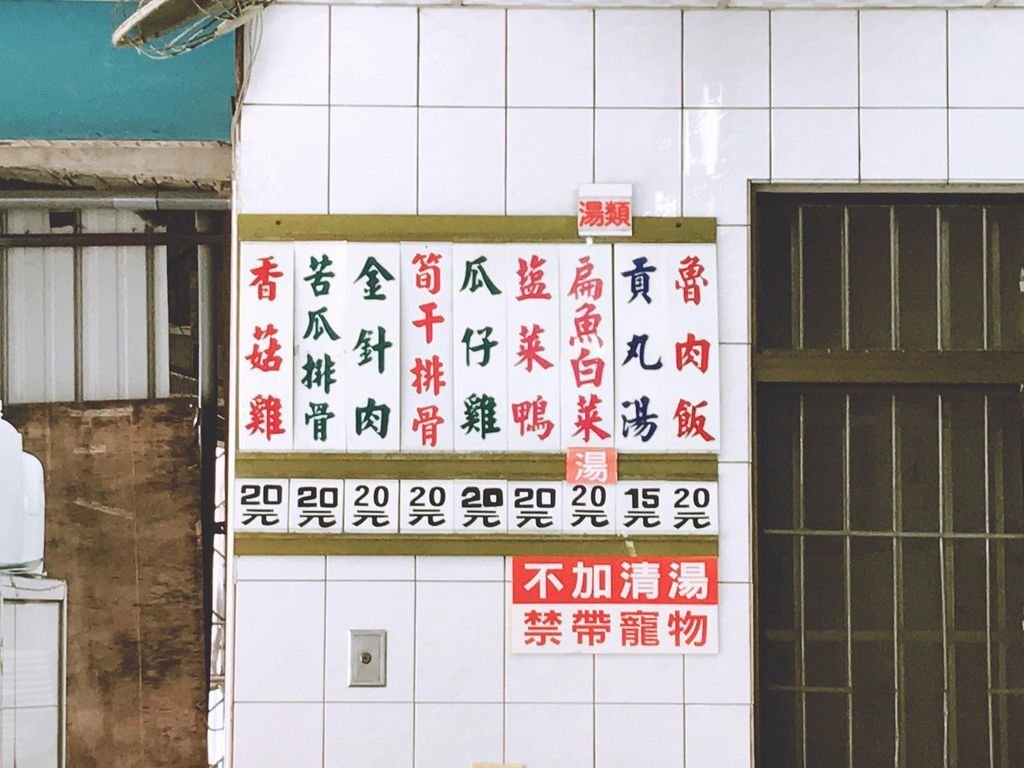 湯類
魯肉飯
貢丸湯
扁魚白菜
湯
塩菜鴨
瓜仔雞
筍干排骨
金針肉
苦瓜排骨
香菇雞
20元
20元
20元
20元
20元
20元
20元
15元
20元
不加清湯
禁帶寵物